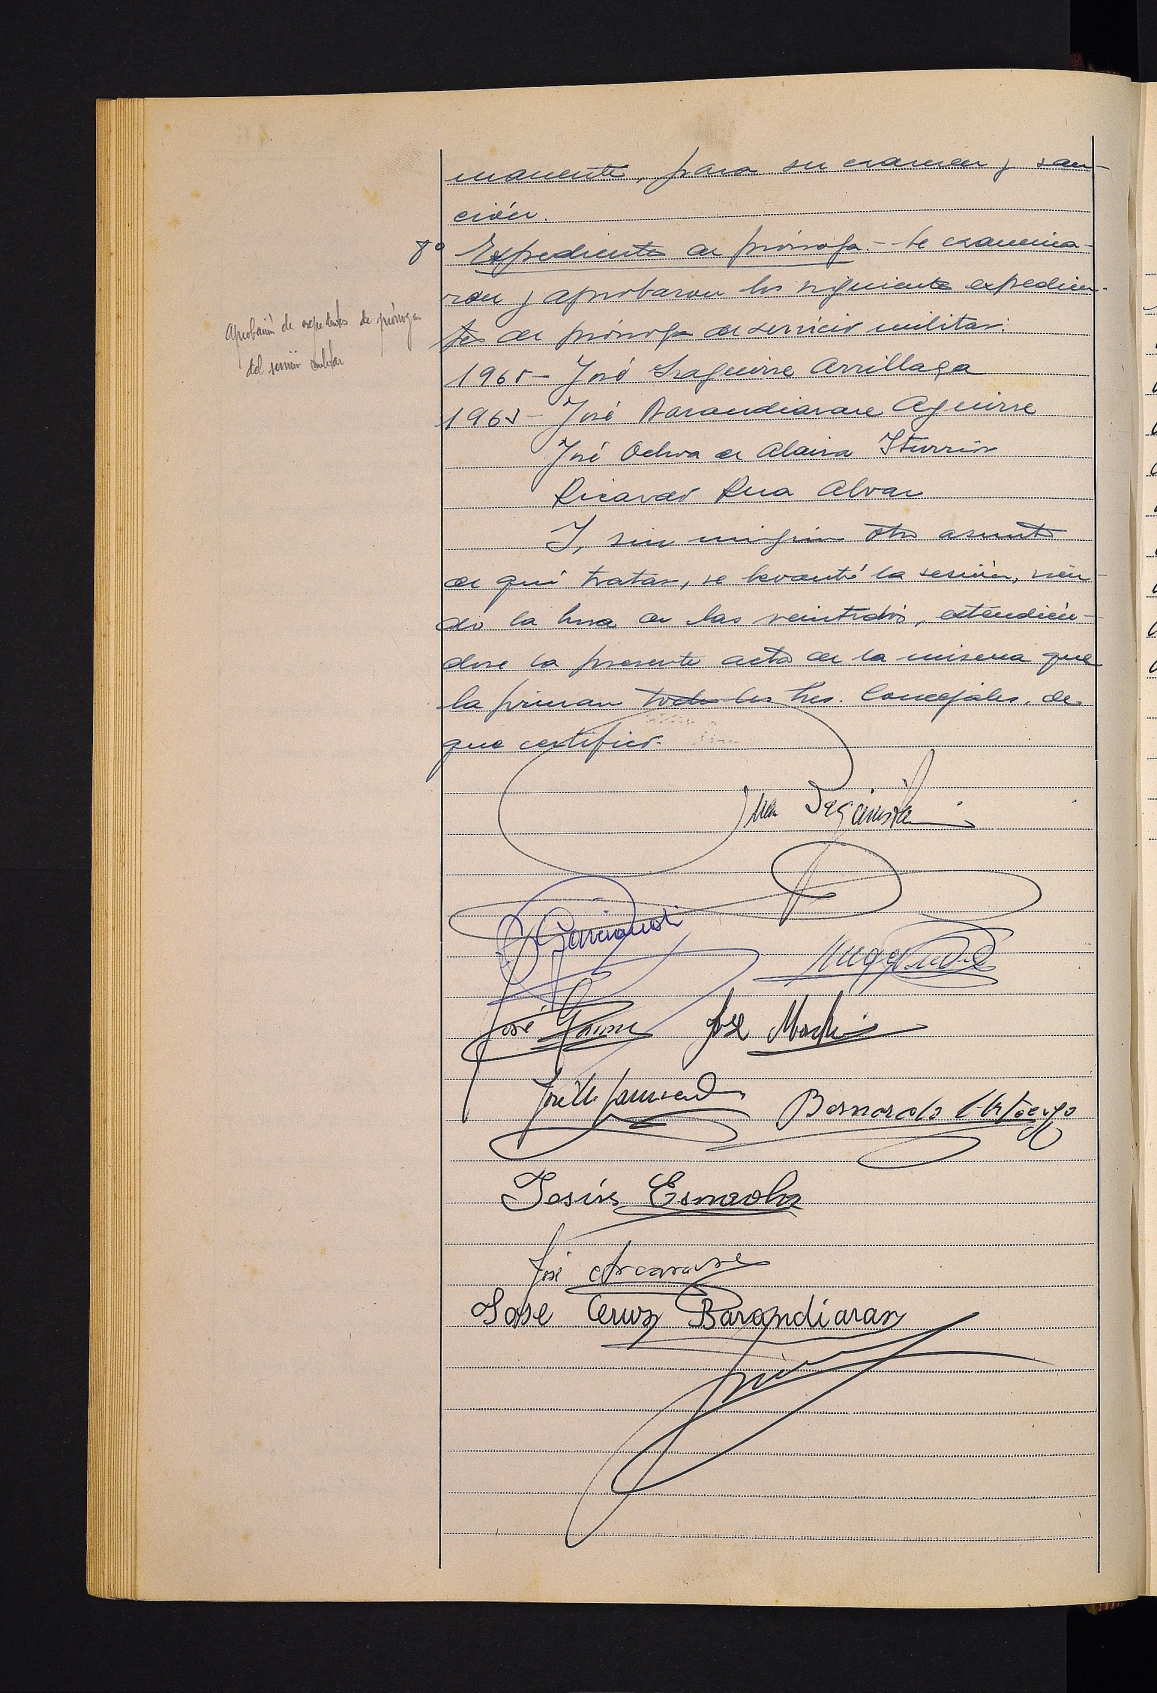 manente, para su examen y san-
ción.
8º Expedientes de prórroga.- Se examina-
ron y aprobaron los siguientes expedien-
tes de prórroga de servicio militar:
Aprobación de expedientes de prórroga
del servicio militar
1965- José Izaguirre Arrillaga
1963- José Barandiaran Aguirre
José Ochoa de Alaiza Iturrioz
Ricardo Rua Alvar
Y, sin ningún otro asunto
de qué tratar, se levantó la sesión, sien-
do la hora de las veintidós, extendién-
dose la presente acta de la misma que
la firman todos los Sres. Concejales, de
que certifico.
José
José
Bernardo
Jesús Esnaola
José
Jose Cruz Barandiaran